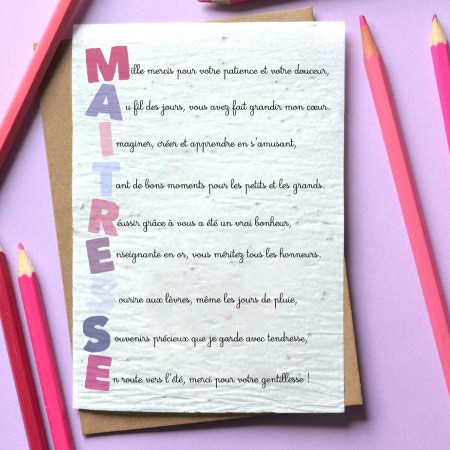 Mille mercis pour votre patience et votre douceur,
Au fil des jours, vous avez fait grandir mon cœur.
Imaginer, créer et apprendre en s'amusant,
Tant de bons moments pour les petits et les grands.
Réussir grâce à vous a été un vrai bonheur,
Enseignante en or, vous méritez tous les honneurs.
Sourire aux lèvres, même les jours de pluie,
Souvenirs précieux que je garde avec tendresse,
En route vers l'été, merci pour votre gentillesse !